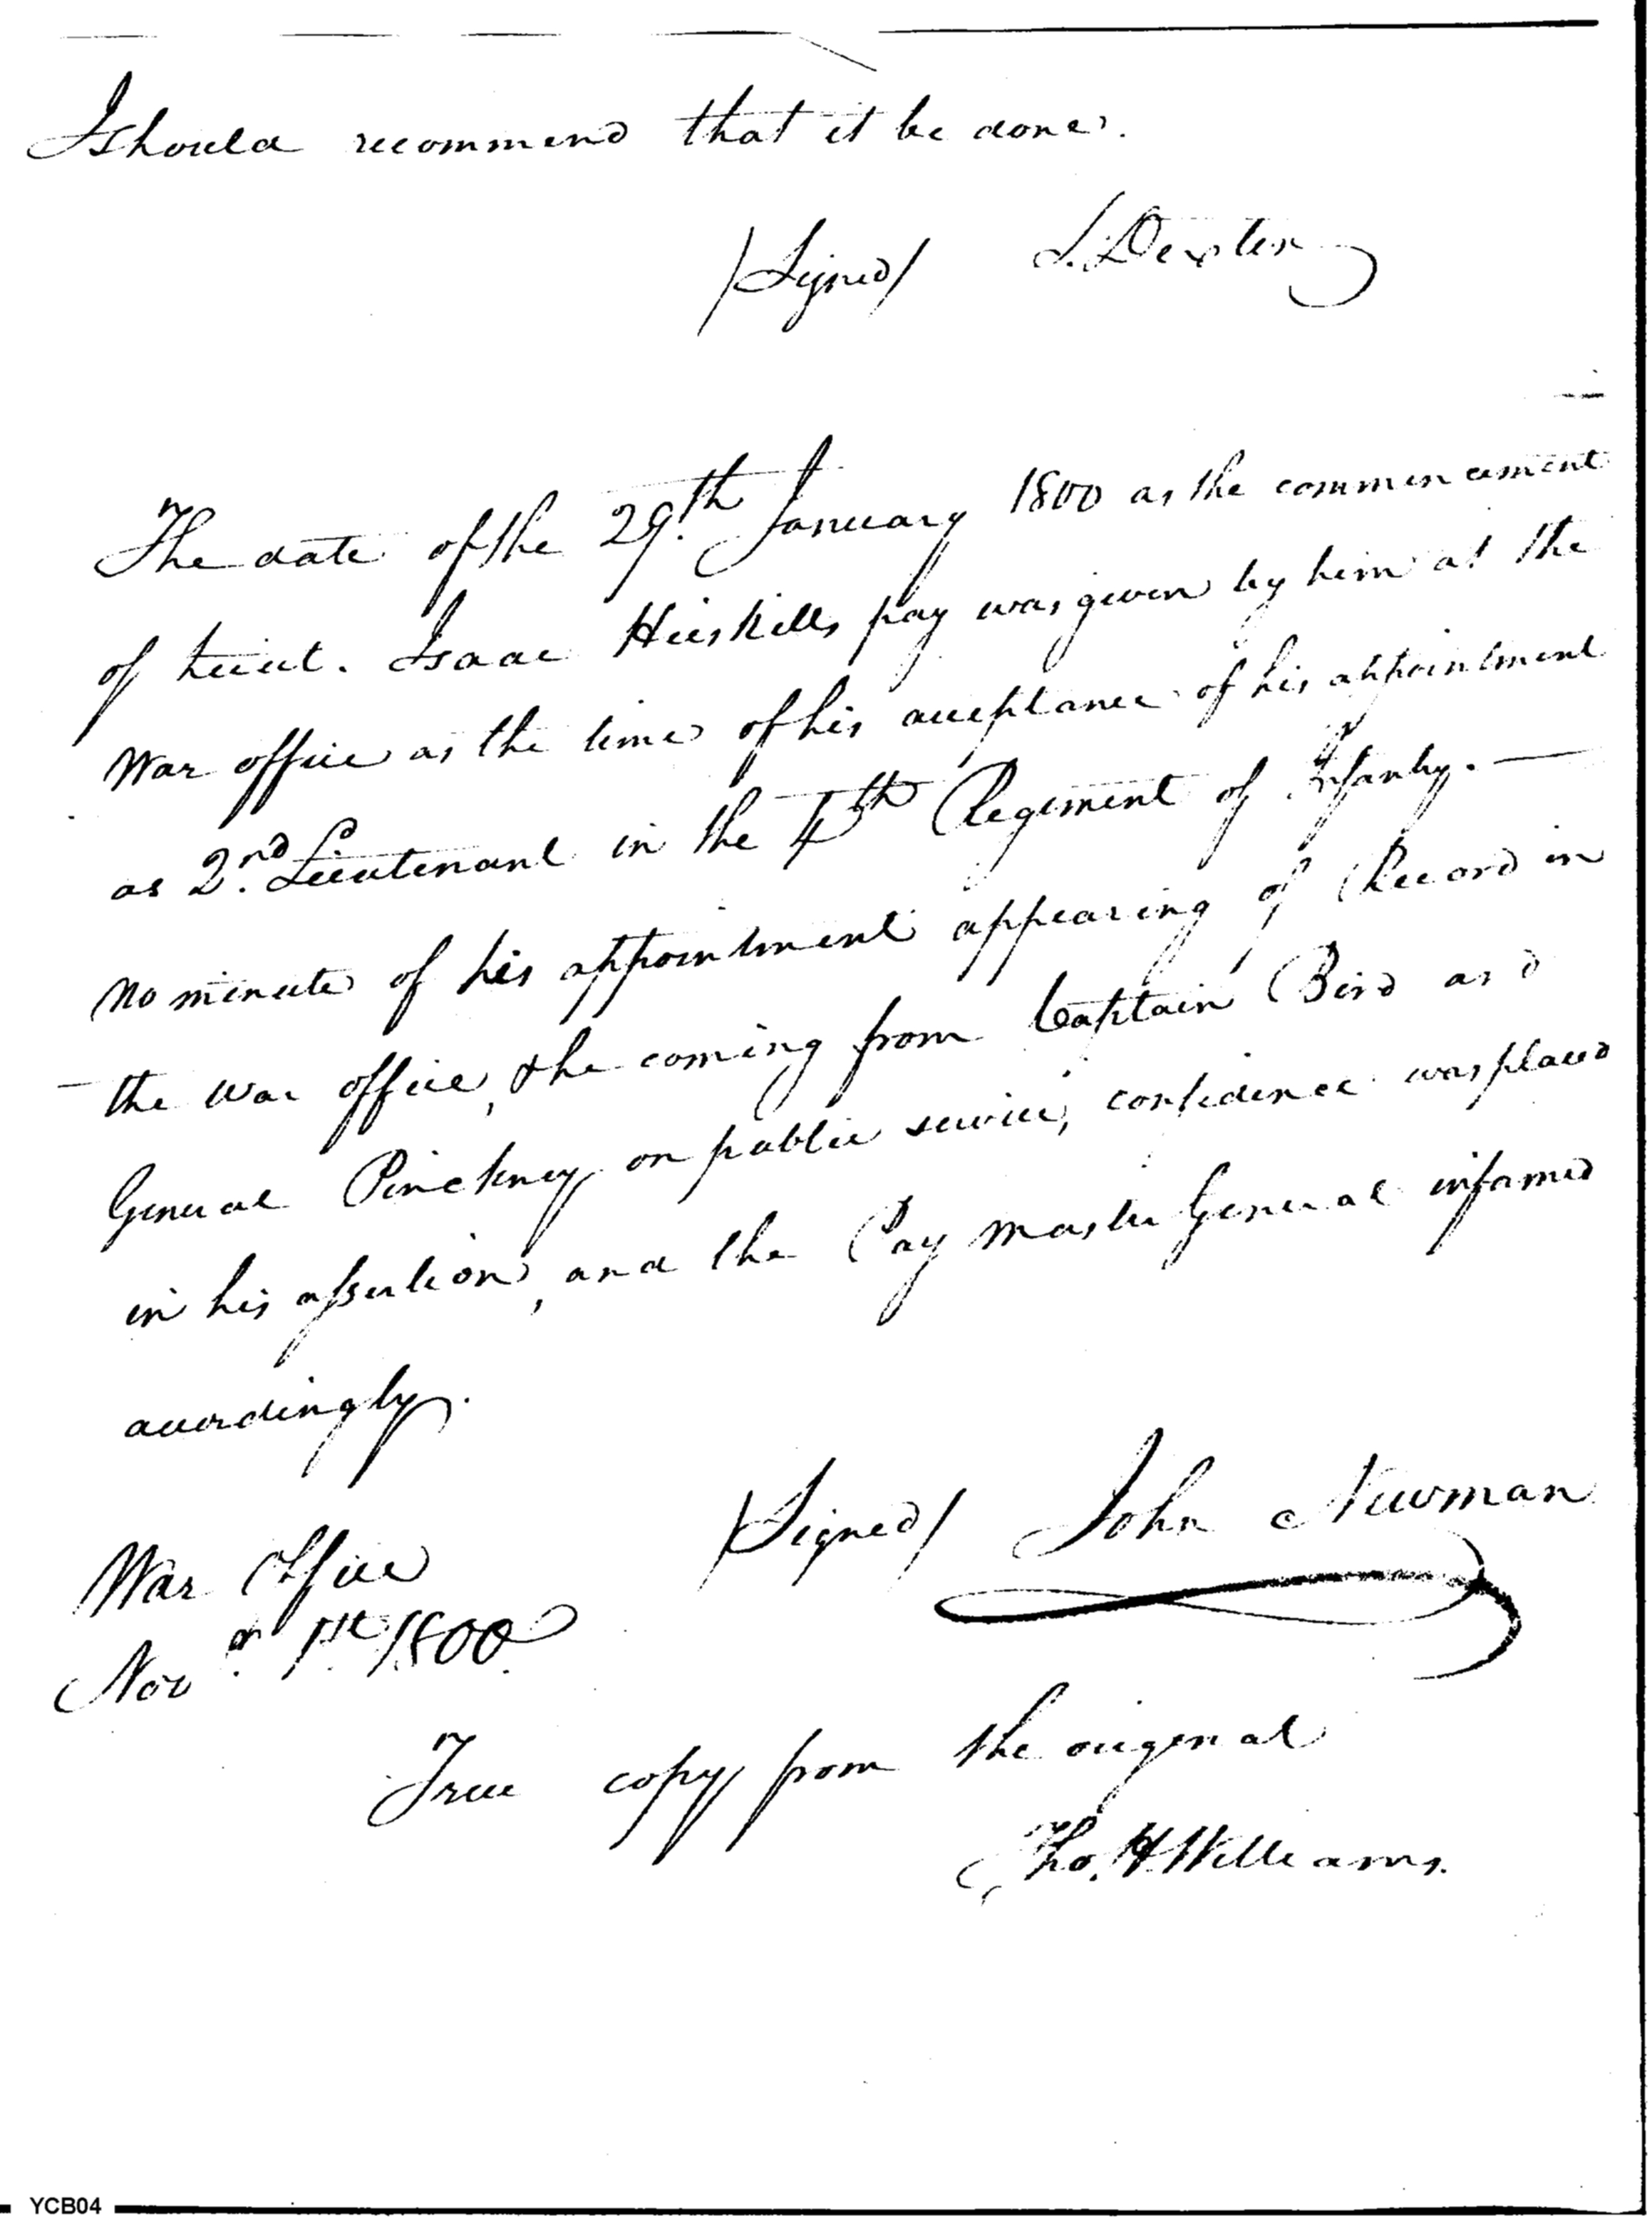 I should recommend that it be done.
/Signed/ S. Dexter
The date of the 29th. January 1800 as the commencement
of Lieut. Isaac Heiskells pay was given by him at the
War office as the time of his acceptance of his appointment
as 2nd. Lieutenant in the 4th Regiment of Infantry. —
No minute of his appointment appearing of Record in
the War office, & he coming from Captain Bird and
General Pinckney on public service, confidence was placed
in his assertion, and the Pay Master General informed
accordingly.
/Signed/ John Newman
War Office
Novr. 1st. 1800
True copy from the original
Tho. H Williams.
YCB04